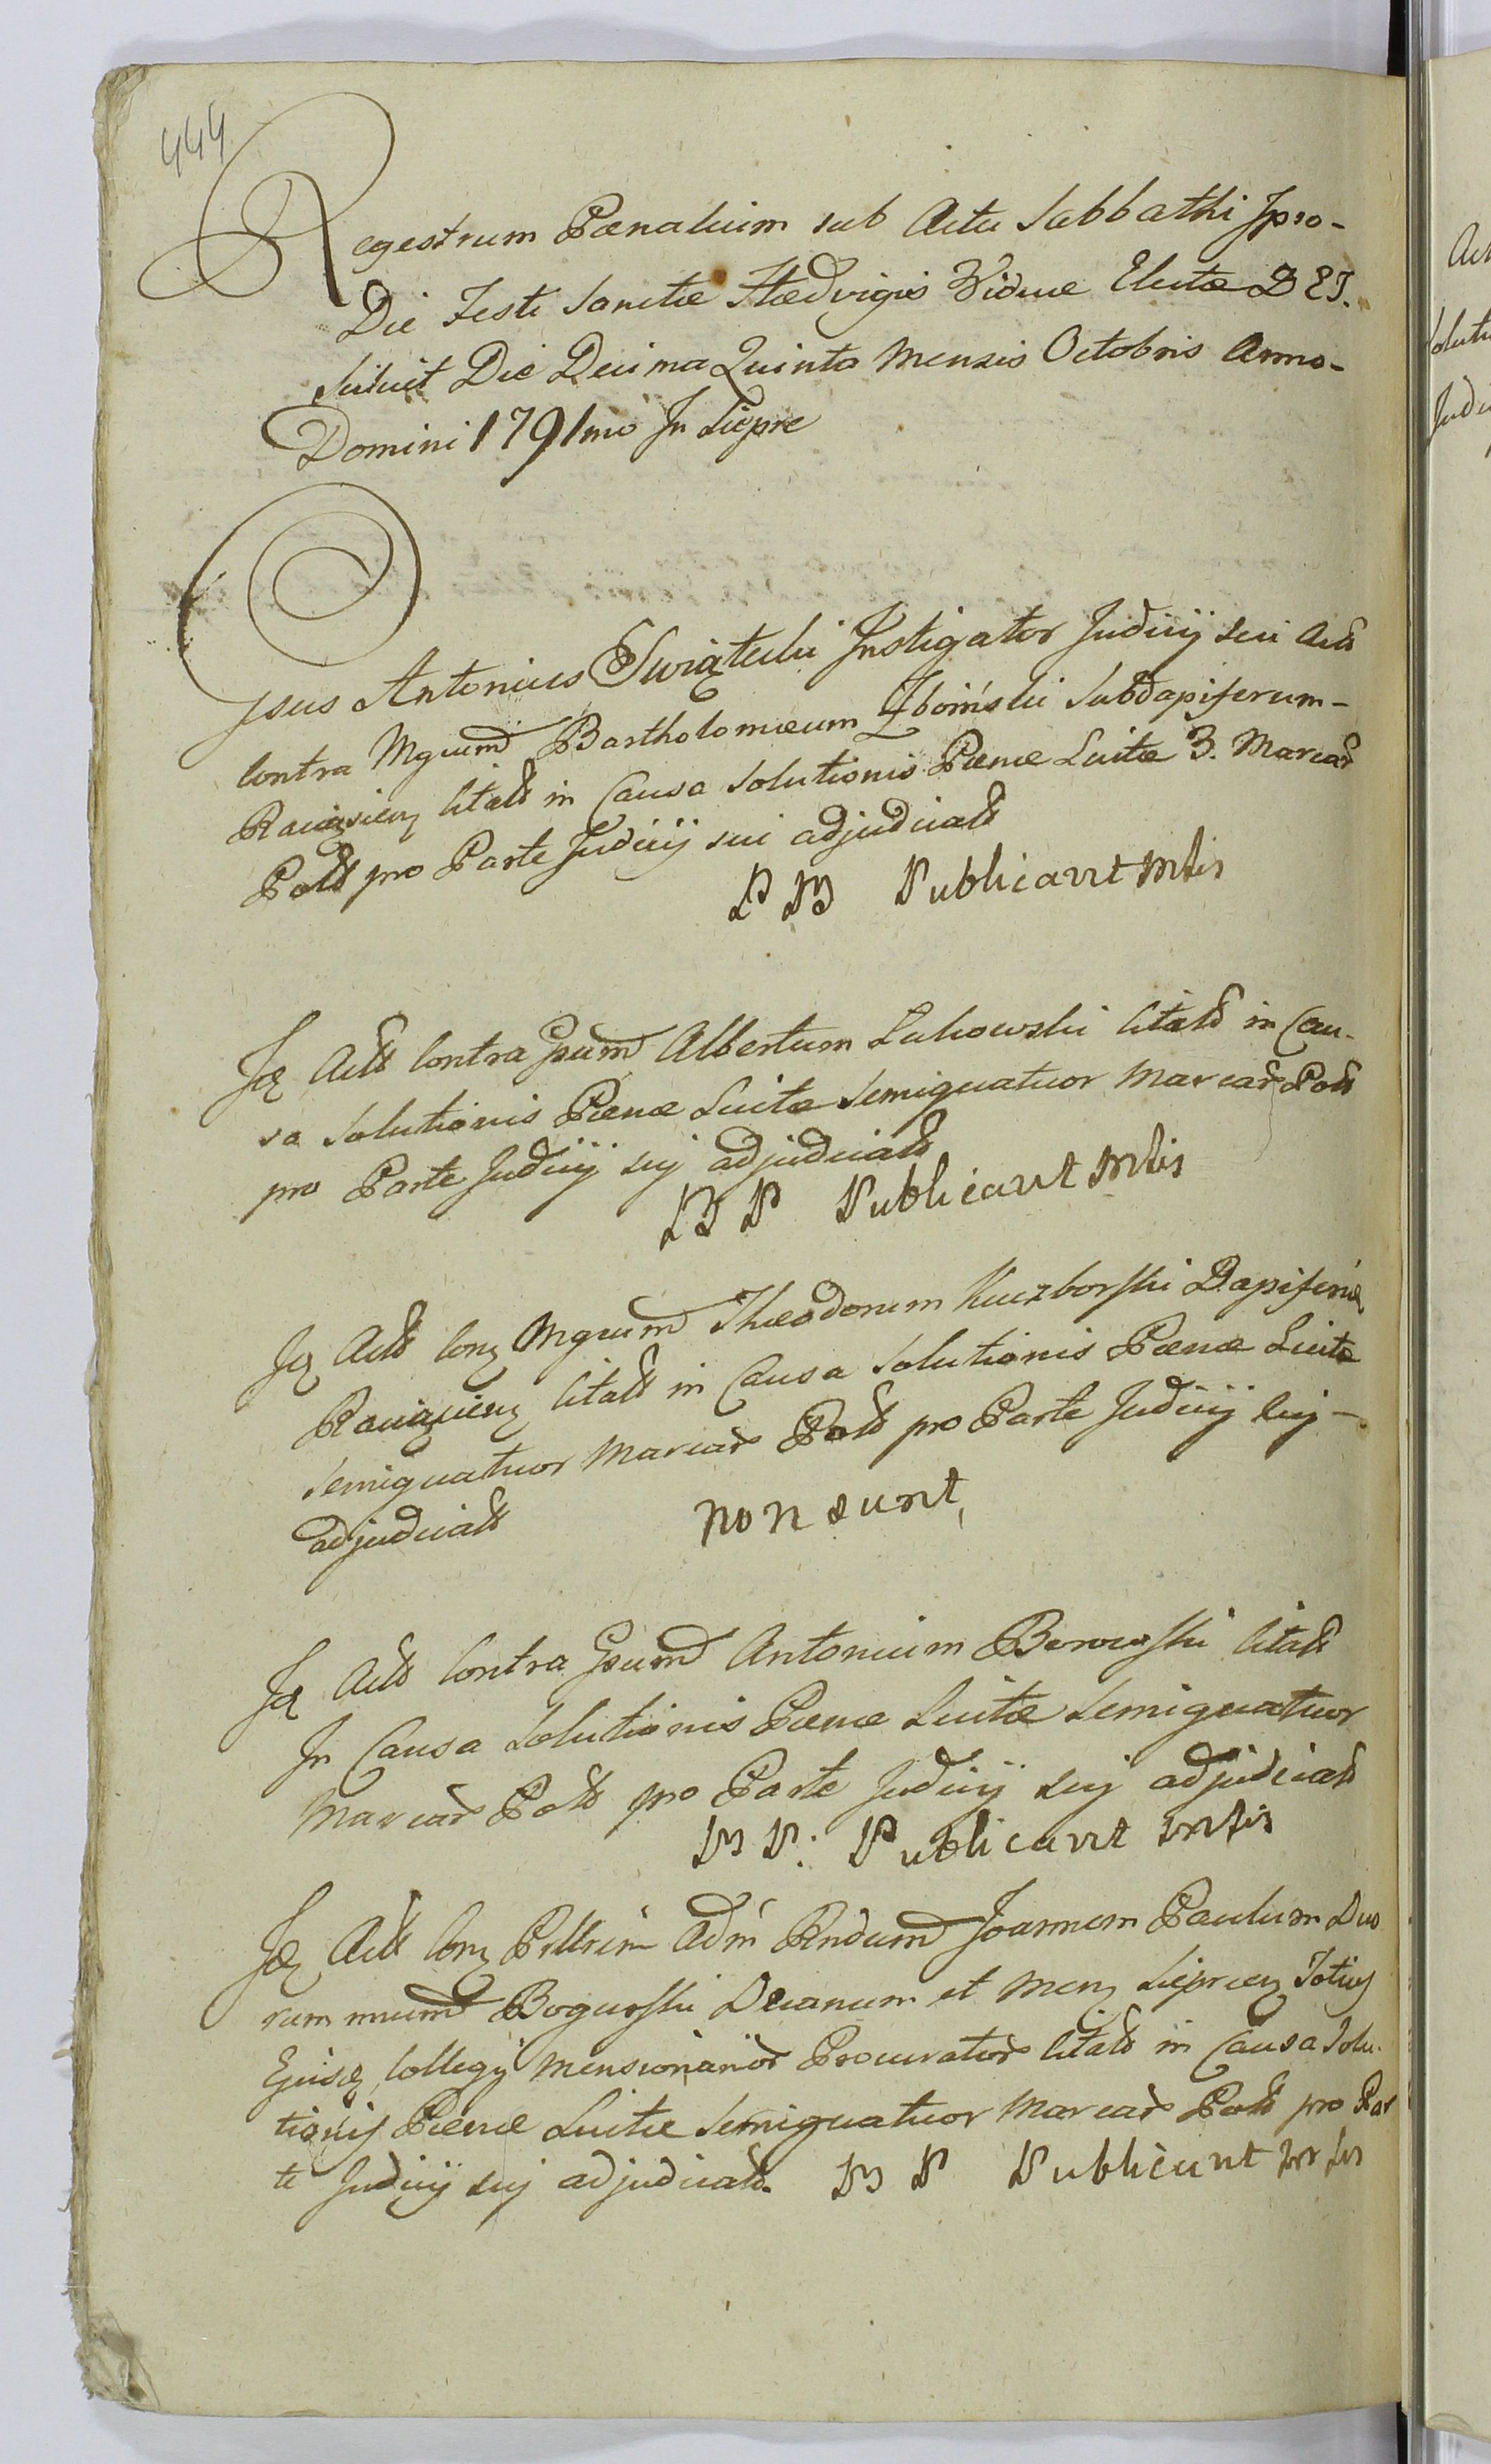 444
Regestrum Pænalium sub Actu Sabbathi Ipso-
Die Festi Sanctæ Hædvigis Viduæ Electæ DEI.
Scilicet Die Decima Quinta Mensis Octobris Anno-
Domini 1791mo In Liepre
Gsus Antonius Swiątecki Instigator Judicij sui Acts
Contra Mgcum Bartholomæum Zboiński Subdapiferum-
Raciązien Citats in Causa Solutionis Pænæ Luitæ 3. Marcar
Polls pro Parte Judicij sui adjudicats
P M Publicavit Mtis
Idq Acts Contra Gsum Albertum Lukowski Citats in Cau-
sa Solutionis Pænæ Luitæ Semiquatuor Marcar Polls
pro Parte Judicij suj adjudicats
M P Publicavit Mtis
Idq Acts Con Mgcum Theodorum Kuczborski Dapiferum
Raciązien Citats in Causa Solutionis Pænæ Luitæ
Semiquatuor Marcar Polls pro Parte Judicij suj-
adjudicats non sunt
Idq Acts Contra Gsum Antonium Borowski Citats
In Causa Solutionis Pænæ Luitæ Semiquatuor
Marcar Polls pro Parte Judicij suj adjudicats
M P: Publicavit Mtis
Idq Acts Con Adm Rndum Joannem Paulum Duo
rum Bogurski Decanum et Liprien Totius
Ejusq Collegij Mensionarior Procurator Citats in Causa Solu-
tionis Pænæ Luitæ Semiquatuor Marcar Polls pro Par
te Judicij suj adjudicats. M P Publicunt Mtis